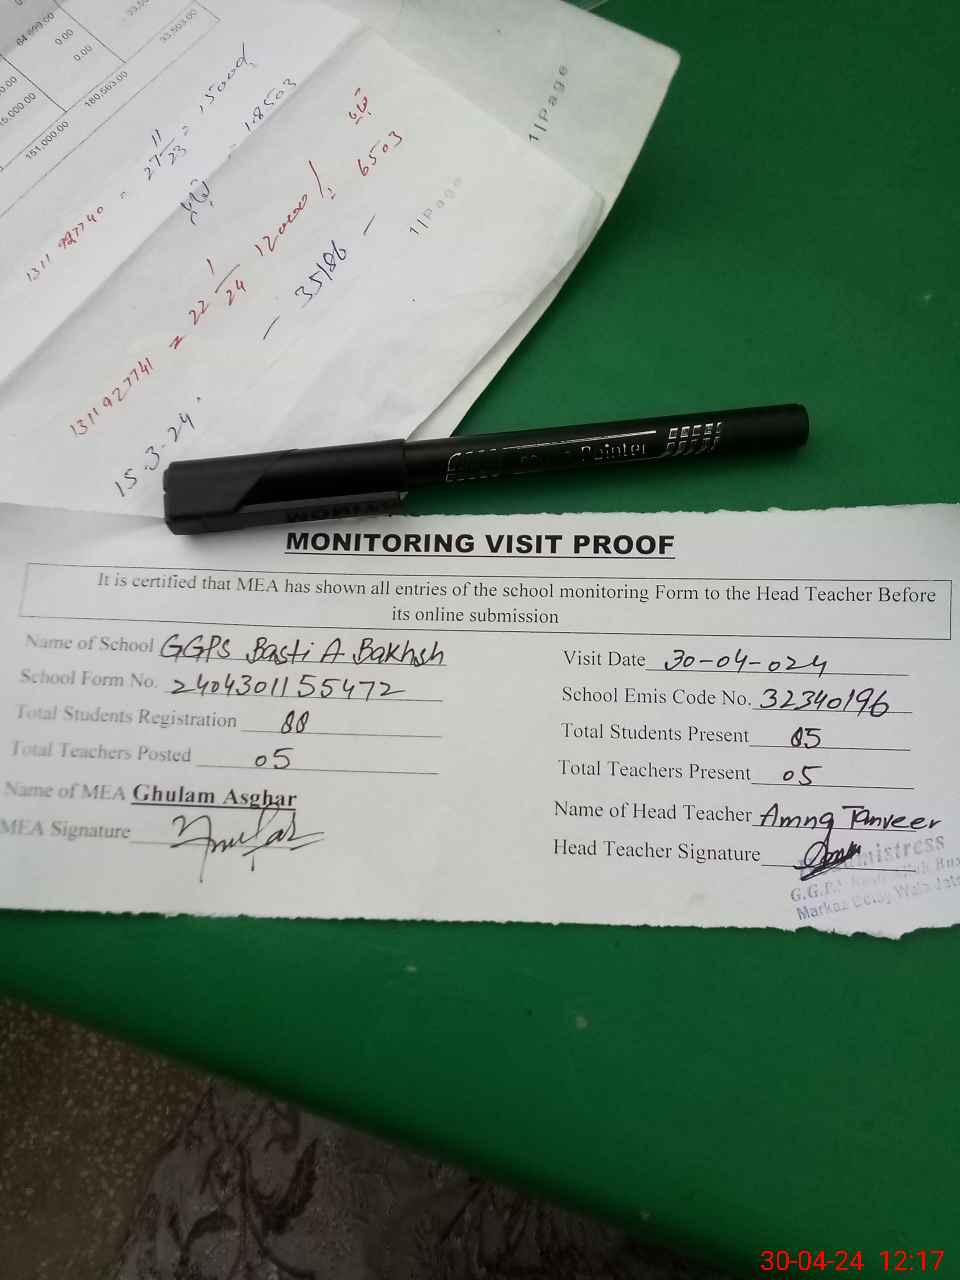 64,699.00
0.00
0.00
15,000.00
180,503.00
33,503.00
151,000.00
1311 927740 - 27 11/23 = 15000/
= 18503
1311927741 = 22 1/24 12000/ = 6503
- 35186 -
15.3.24.
1|Page
1|Page
Pointer
MONITORING VISIT PROOF
It is certified that MEA has shown all entries of the school monitoring Form to the Head Teacher Before
its online submission
Name of School GGPS Basti A Bakhsh
Visit Date 30-04-024
School Form No. 2404301155472
School Emis Code No. 32340196
Total Students Registration 88
Total Students Present 85
Total Teachers Posted 05
Total Teachers Present 05
Name of MEA Ghulam Asghar
Name of Head Teacher Amna Tanveer
MEA Signature
Head Teacher Signature
mistress
G.G.P.
Markaz
30-04-24 12:17